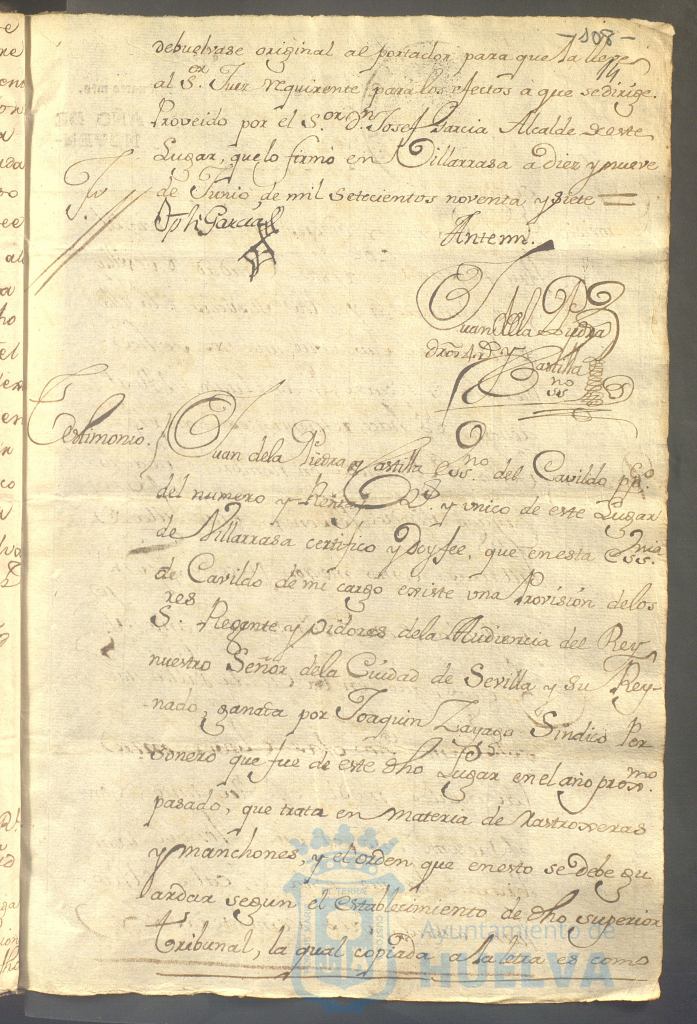 -108-
debuelvase original al portador para que la lleve
al S.or Juez requirente para los efectos a que se dirige.
Proveido por el S.or D.n Josef Garcia Alcalde de este
Lugar, que lo firmó en Villarrasa a diez y nueve
de Junio, de mil setecientos noventa y siete
Jph Garcia
Antemi.
Juan de la Piedra
y Castilla
Testimonio.
Juan de la Piedra y Castilla Ess.no del Cavildo pp.co
del numero y Rentas R.s y unico de este Lugar
de Villarrasa certifico y doy fee, que en esta Ess.nia
de Cavildo de mi cargo existe una Provision de los
S.res Regente y Oidores de la Audiencia del Rey
nuestro Señor de la Ciudad de Sevilla y su Rey-
nado, ganada por Joaquin Zayago Sindico Per-
sonero que fue de este dho Lugar en el año prox.mo
pasado, que trata en materia de Rastrogeras
y manchones, y el orden que en esto se debe gu
ardar segun el establecimiento de dho superior
tribunal, la qual copiada a la letra es como
Ayuntamiento de
HUELVA